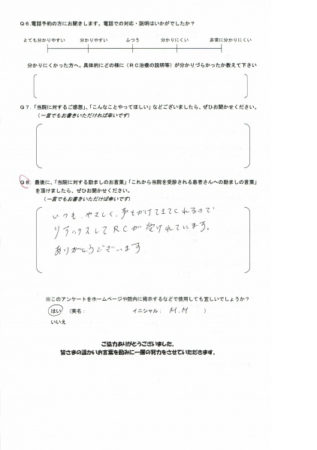 Q6.電話予約の方にお聞きします。電話での対応・説明はいかがでしたか?
とても分かりやすい 分かりやすい ふつう 分かりにくい 非常に分かりにくい
分かりにくかった方へ、具体的にどの様に(RC治療の説明等)が分かりづらかったか教えて下さい
Q7.「当院に対するご感想」、「こんなことやってほしい」などございましたら、ぜひお聞かせください。
(一言でもお書きいただければ幸いです)
Q8.最後に、「当院に対する励ましのお言葉」「これから当院を受診される患者さんへの励ましの言葉」
を頂けましたら、ぜひお聞かせください。
(一言でもお書きいただけば幸いです)
いつも、やさしく、声をかけてきてくれるので
リラックスしてRCが受けれています。
ありがとうございます
※このアンケートをホームページや院内に掲示するなどで使用しても宜しいでしょうか?
はい (実名: イニシャル: M.M )
いいえ
ご協力ありがとうございました。
皆さまの温かいお言葉を励みに一層の努力をさせていただきます。